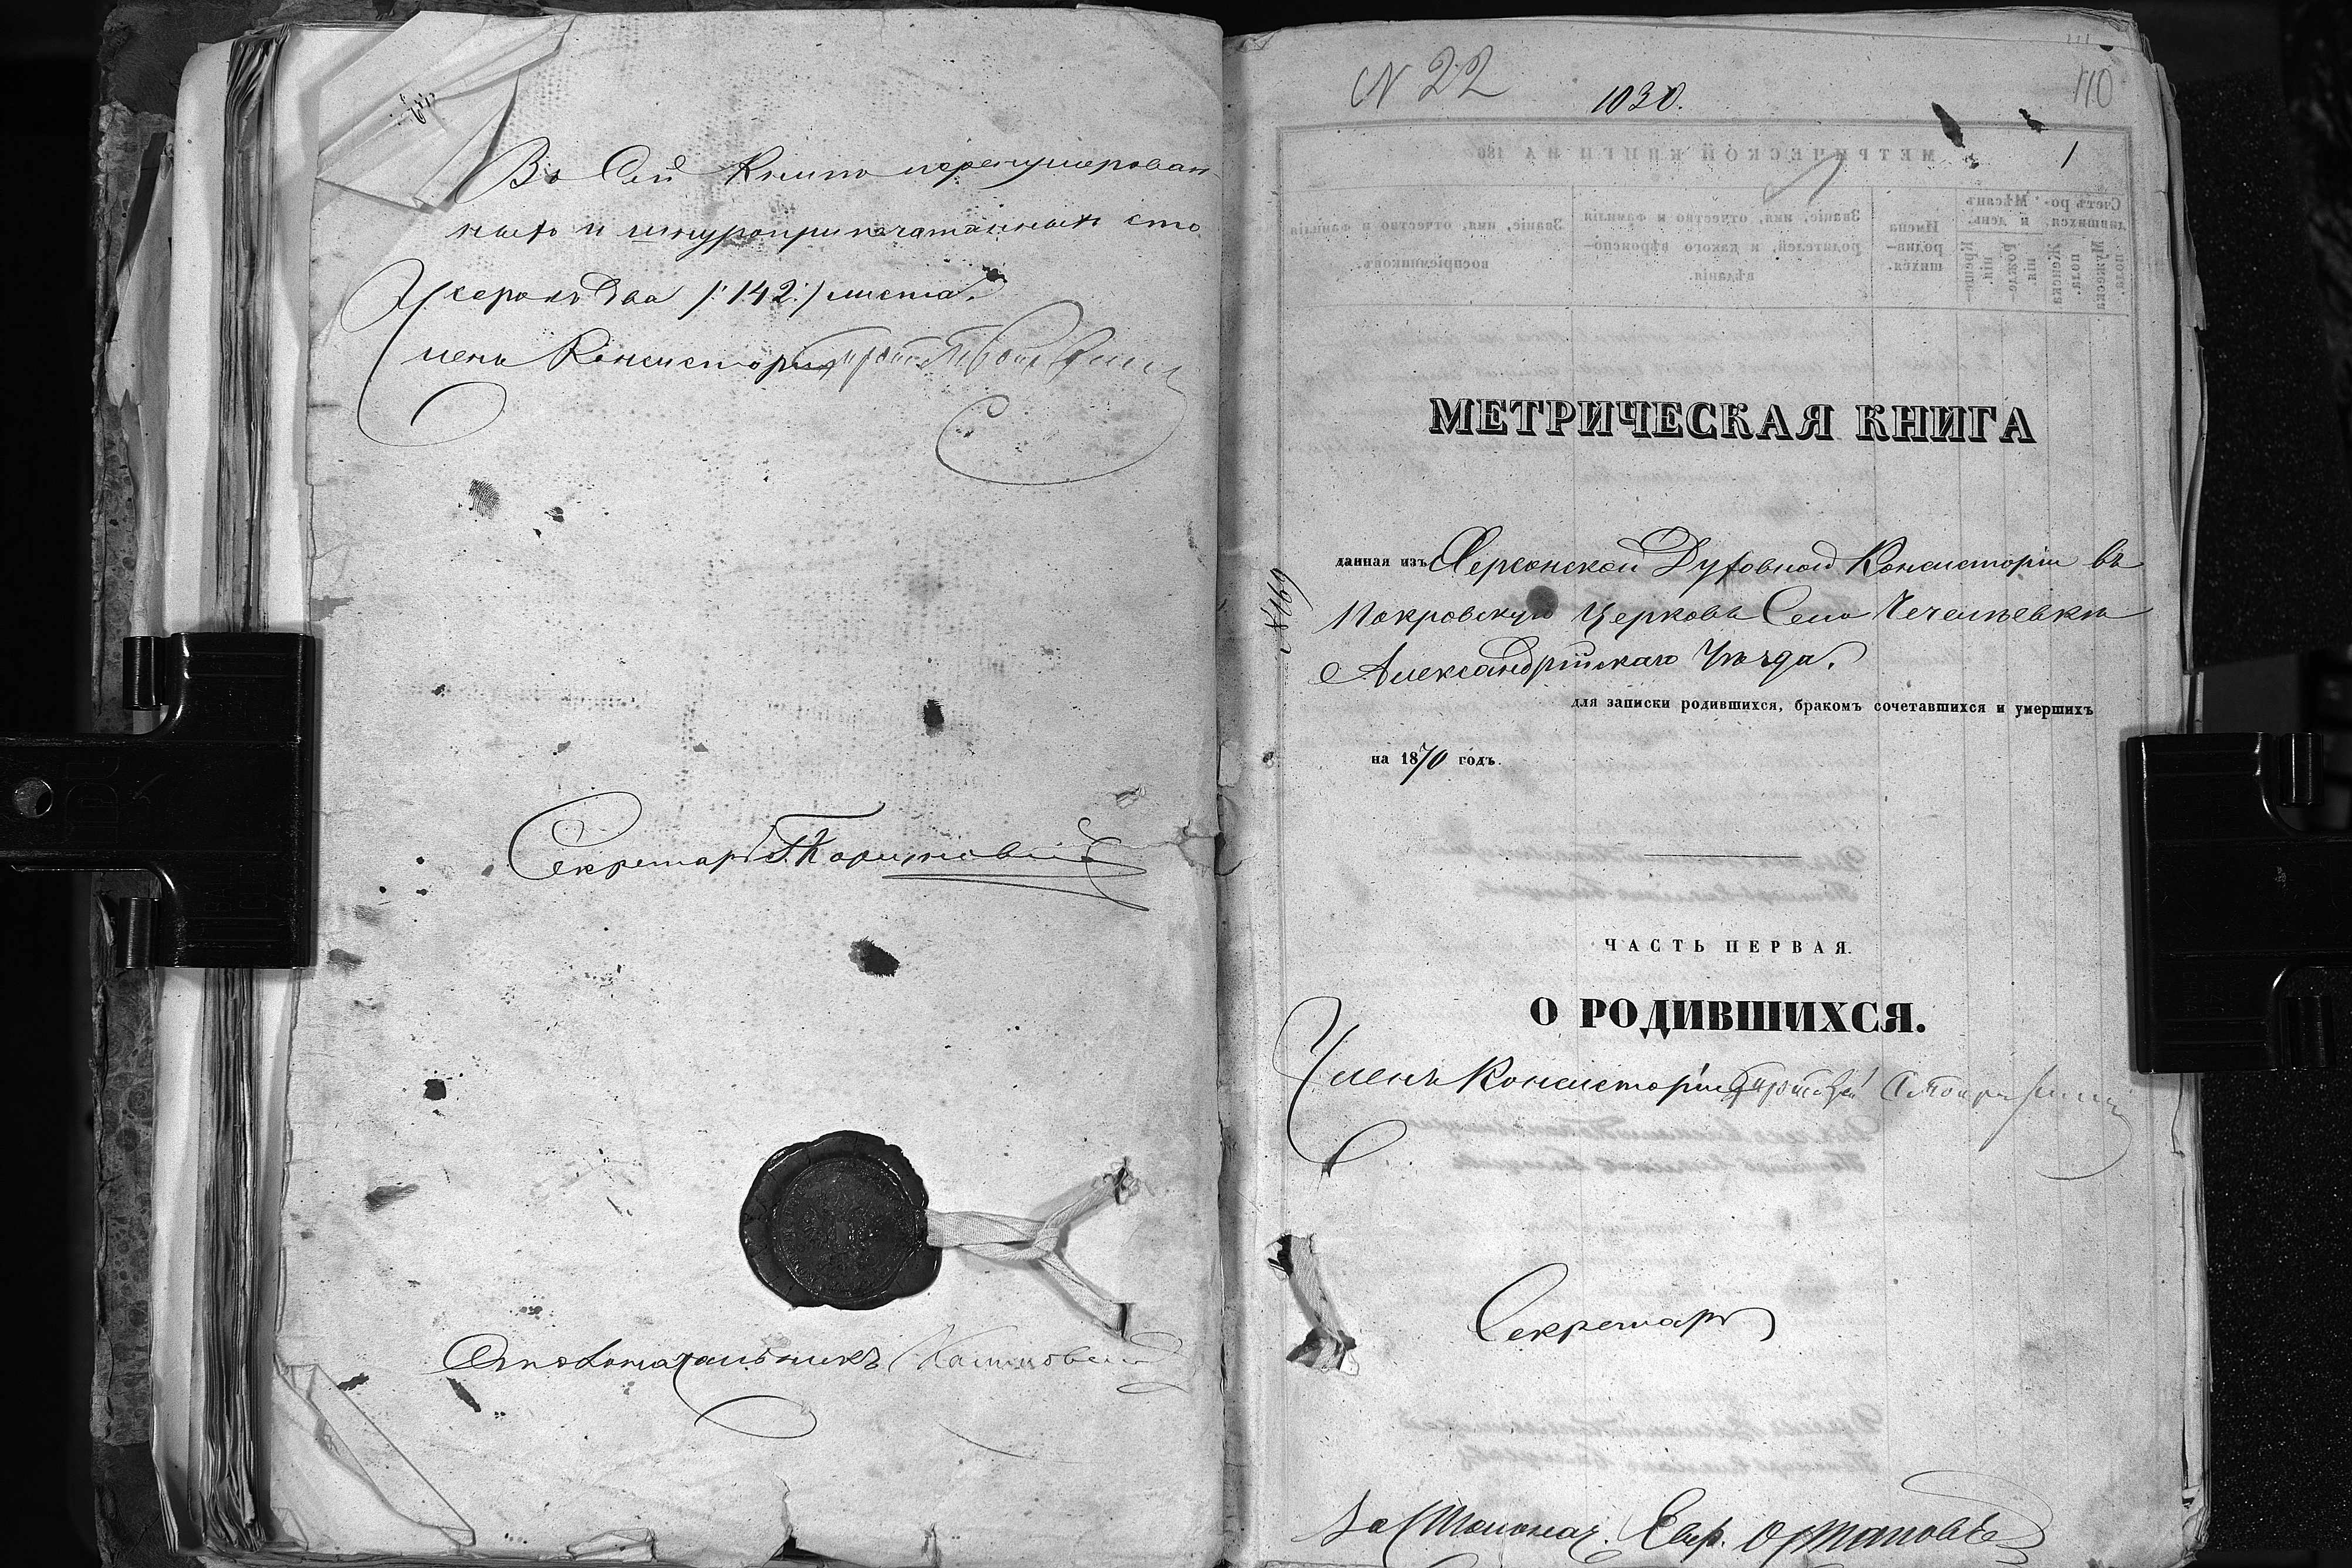 Въ Сей Книгѣ перенумерован
ныхъ и шнуроприпечатанныхъ сто
сорокъ два /:142:/ листа.
Членъ Консисторіи
Секретарь
Столоначальникъ
N 22
1030.
110
1
МЕТРИЧЕСКОЙ КНИГИ НА 186
Счетъ ро-
дившихся.
Мѣсяцъ
и день.
Имена
родив-
шихся.
Званіе, имя, отчество и фамилія
родителей, и какого вѣроиспо-
вѣданія
Званіе, имя, отчество и фамилія
воспріемниковъ.
Мужеска
пола.
Женска
пола.
Рожде-
нія.
Креще-
нія.
МЕТРИЧЕСКАЯ КНИГА
данная изъ Херсонской Духовной Консисторіи въ
Покровскую Церковь Села Чечелѣевки
Александрійскаго Уѣзда.
для записки родившихся, бракомъ сочетавшихся и умершихъ
на 1870 годъ.
ЧАСТЬ ПЕРВАЯ.
О РОДИВШИХСЯ.
Членъ Консисторіи
Секретарь
За Столонач.